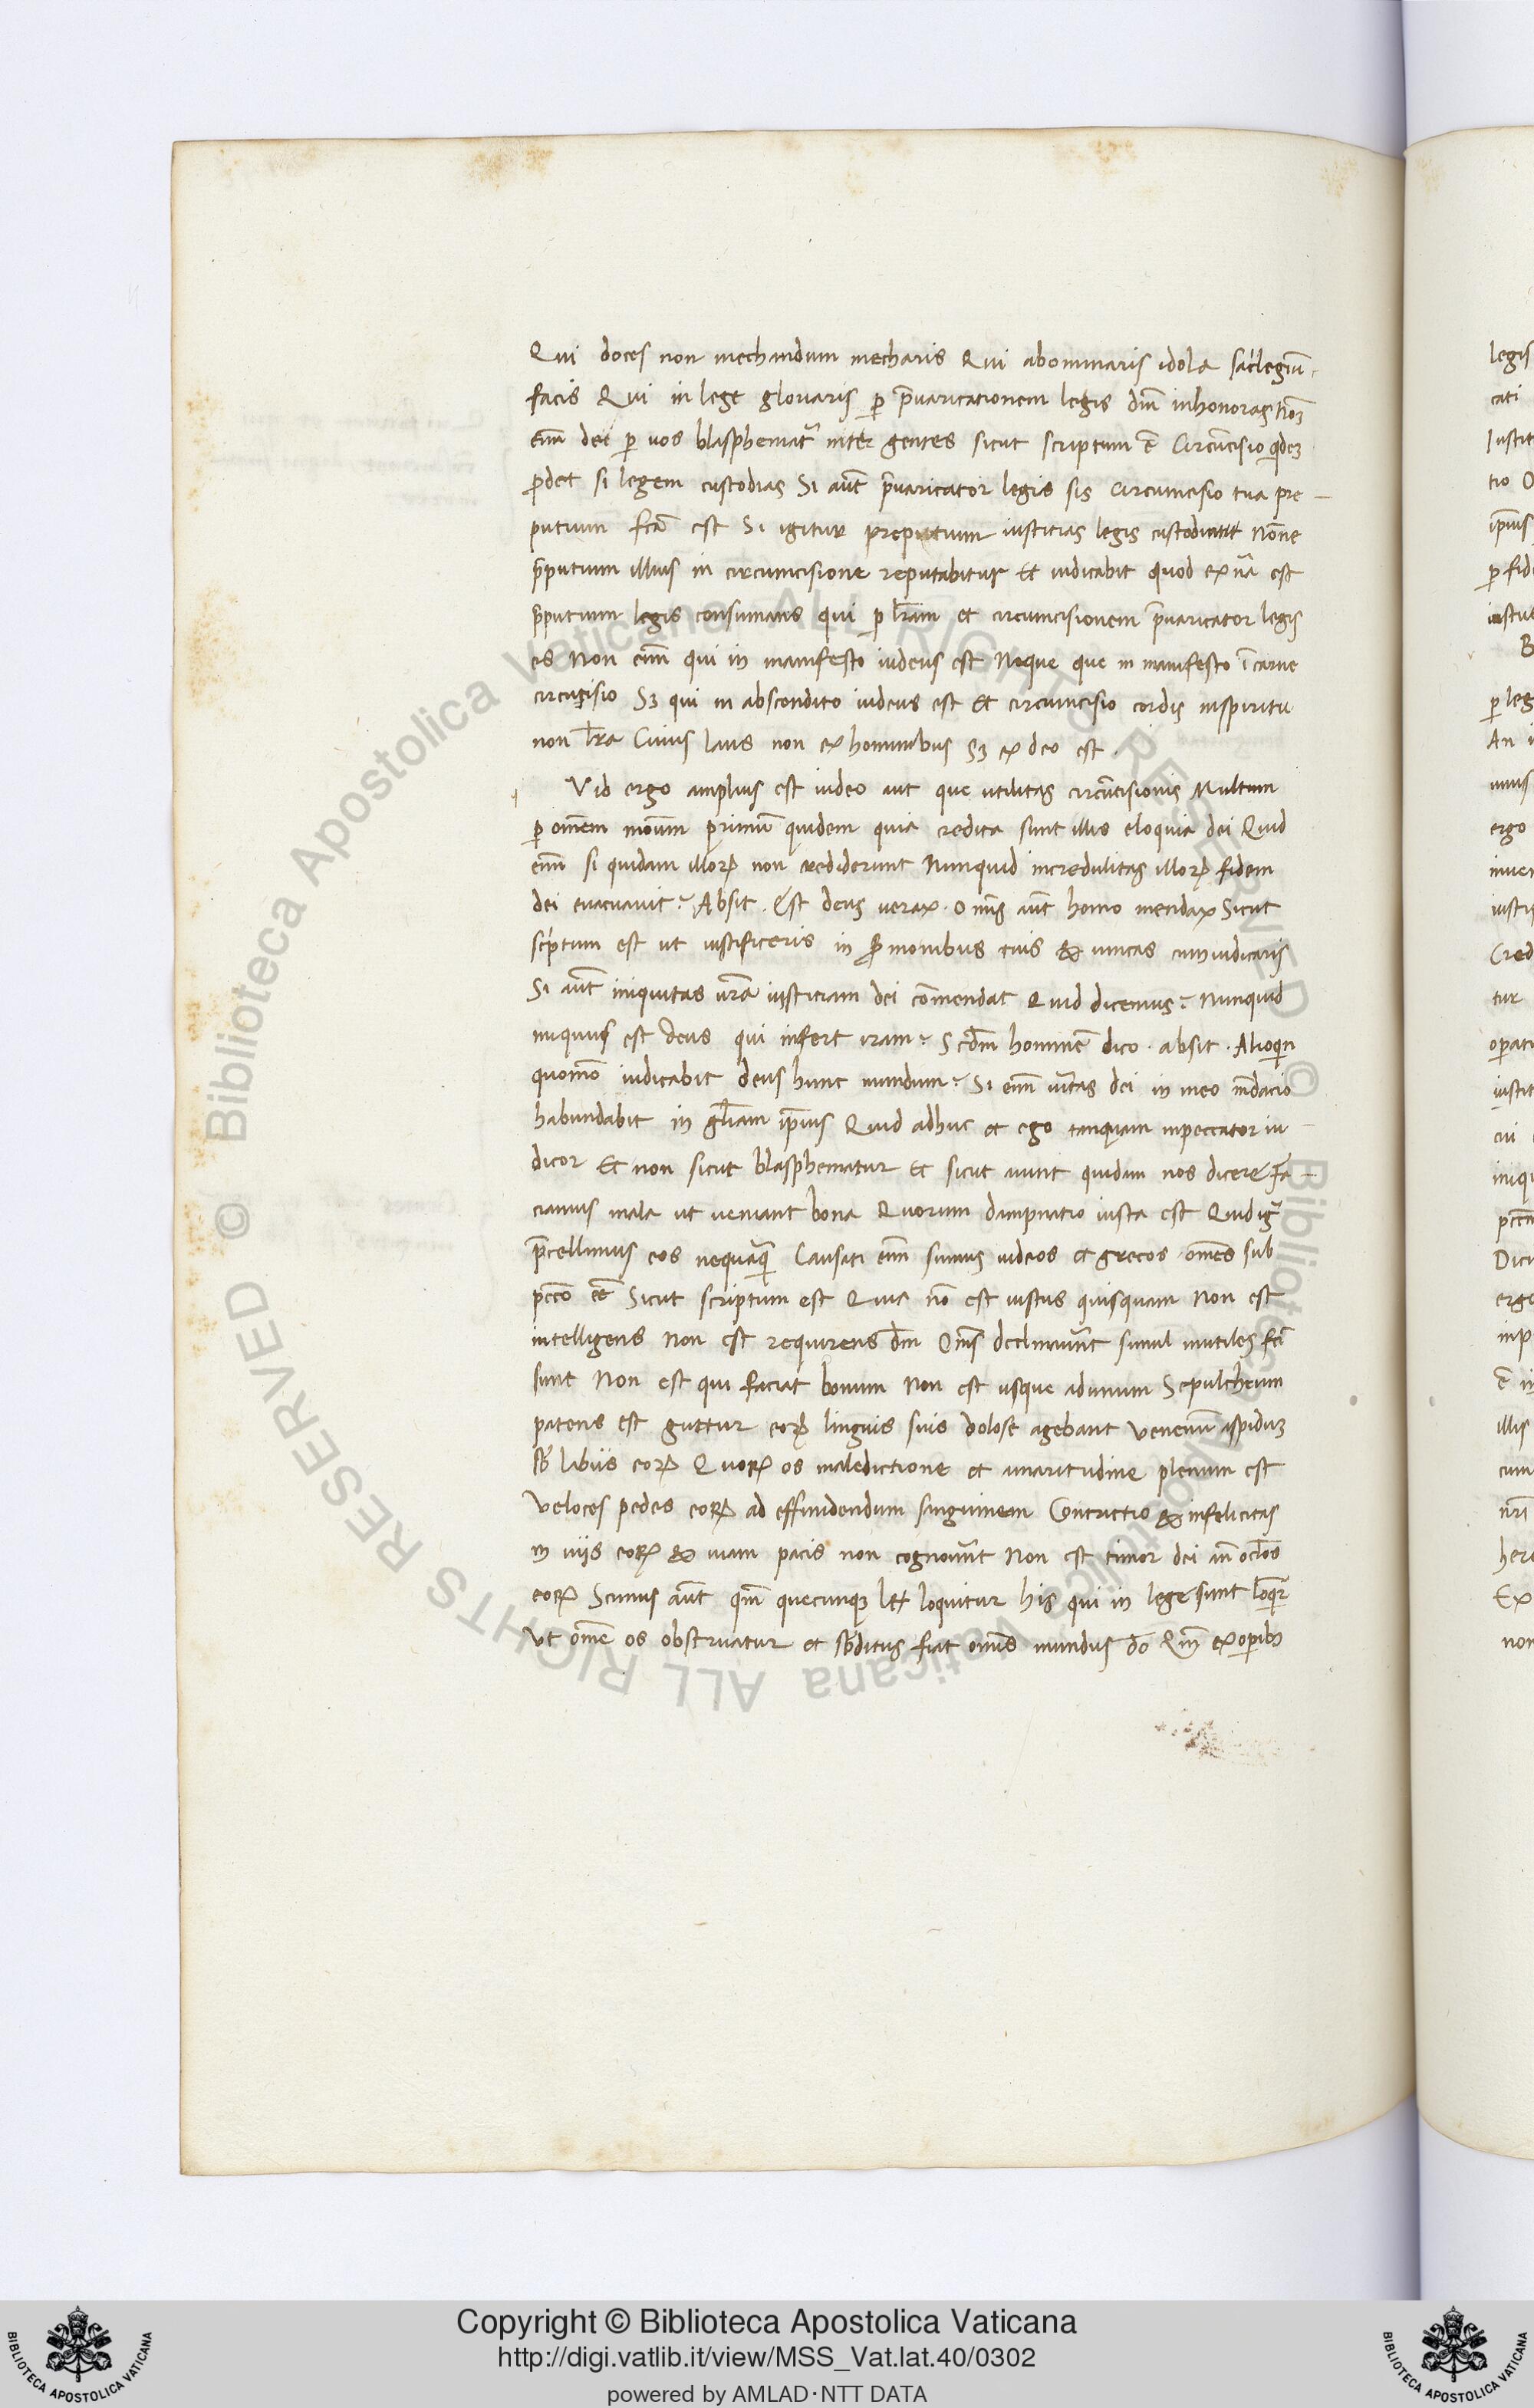 Qui doces non mechandum mecharis Qui abominaris idola sac̓legiũ
facis Qui in lege gloriaris ꝑ p̃uaricationem legis dm̃ inhonoras Nom̃
enĩ dei ꝑ uos blasphemat᷑ inter gentes sicut scriptum ẽ Circũcisio qͥdeꝫ
ꝓdet si legem custodias Si aut̃ p̃uaricator legis sis circumcisio tua pre
putium fcã est Si igitur preputium iusticias legis custodiat Nõne
p̃putium illius in circumcisione reputabitur Et iudicabit quod ex nã est
p̃putium legis consumans qui ꝑ lr̃am et circumcisionem p̃uaricator legis
es Non enĩ qui in manifesto iudeus est Neque que in manifesto ĩ carne
circũcisio Sꝫ qui in abscondito iudeus est Et circumcisio cordis inspiritu
non lr̃a Cuius laus non ex hominibus Sꝫ ex deo est .
Vid ergo amplius est iudeo aut que utilitas circũcisionis Multum
ꝑ omẽm modum primũ quidem quia credita sunt illis eloquia dei Quid
enĩ si quidam illoꝝ non crediderunt Nunquid incredulitas illoꝝ fidem
dei euacuauit? Absit . Est deus uerax . omnis aut̃ homo mendax Sicut
sc̓ptum est ut iustificeris in ẜmonibus tuis & uincas cum iudicaris
Si aut̃ iniquitas ur̃a iusticiam dei cõmendat Quid dicemus? Nunquid
iniquus est deus qui infert iram? Scdm̃ hominẽ dico . absit . Alioqͥn
quomõ iudicabit deus hunc mundum? Si enĩ uĩtas dei in meo mẽdacio
habundabit in gl̃iam ip̃ius Quid adhuc et ego tanquam inpeccator iu
dicor Et non sicut blasphematur Et sicut aiunt quidam nos dicere Fa
ciamus mala ut ueniant bona Quorum dampnatio iusta est Quid igͥ
p̃cellimus eos nequaq̃ Causati enĩ sumus iudeos et grecos omẽs sub
pcc̃o eẽ Sicut scriptum est Quia nõ est iustus quisquam Non est
intelligens Non est requirens dm̃ Oms̃ declinauer̃t simul inutiles fc̃i
sunt Non est qui faciat bonum Non est usque adunum Sepulchrum
patens est guttur eoꝝ linguis suis dolose agebant Venenũ aspiduꝫ
sb̃ labiis eoꝝ Quoꝝ os maledictione et amaritudine plenum est
Veloces pedes eoꝝ ad effundendum sanguinem Contrictio & infelicitas
in uiis eoꝝ & uiam pacis non cognouer̃t Non est timor dei añ ocl̃os
eoꝝ Scimus aut̃ qm̃ quecunqꝫ lex loquitur his qui in lege sunt loqͥr
Vt om̃e os obstruatur et sb̃ditus fiat omĩs mundus dõ Qm̃ ex oꝑibꝫ
Copyright © Biblioteca Apostolica Vaticana
http://digi.vatlib.it/view/MSS_Vat.lat.40/0302
powered by AMLAD·NTT DATA